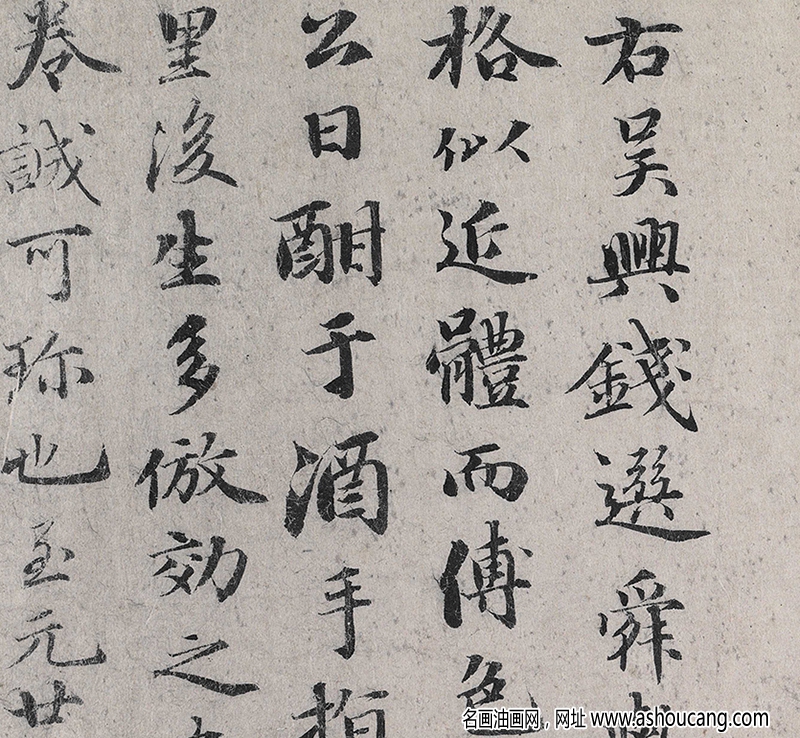 右吴興錢選舜
格似近體而傅色
公日酣于酒手指
里後生多倣效之
卷誠可珎也至元廿
名画油画网，网址 www.ashoucang.com